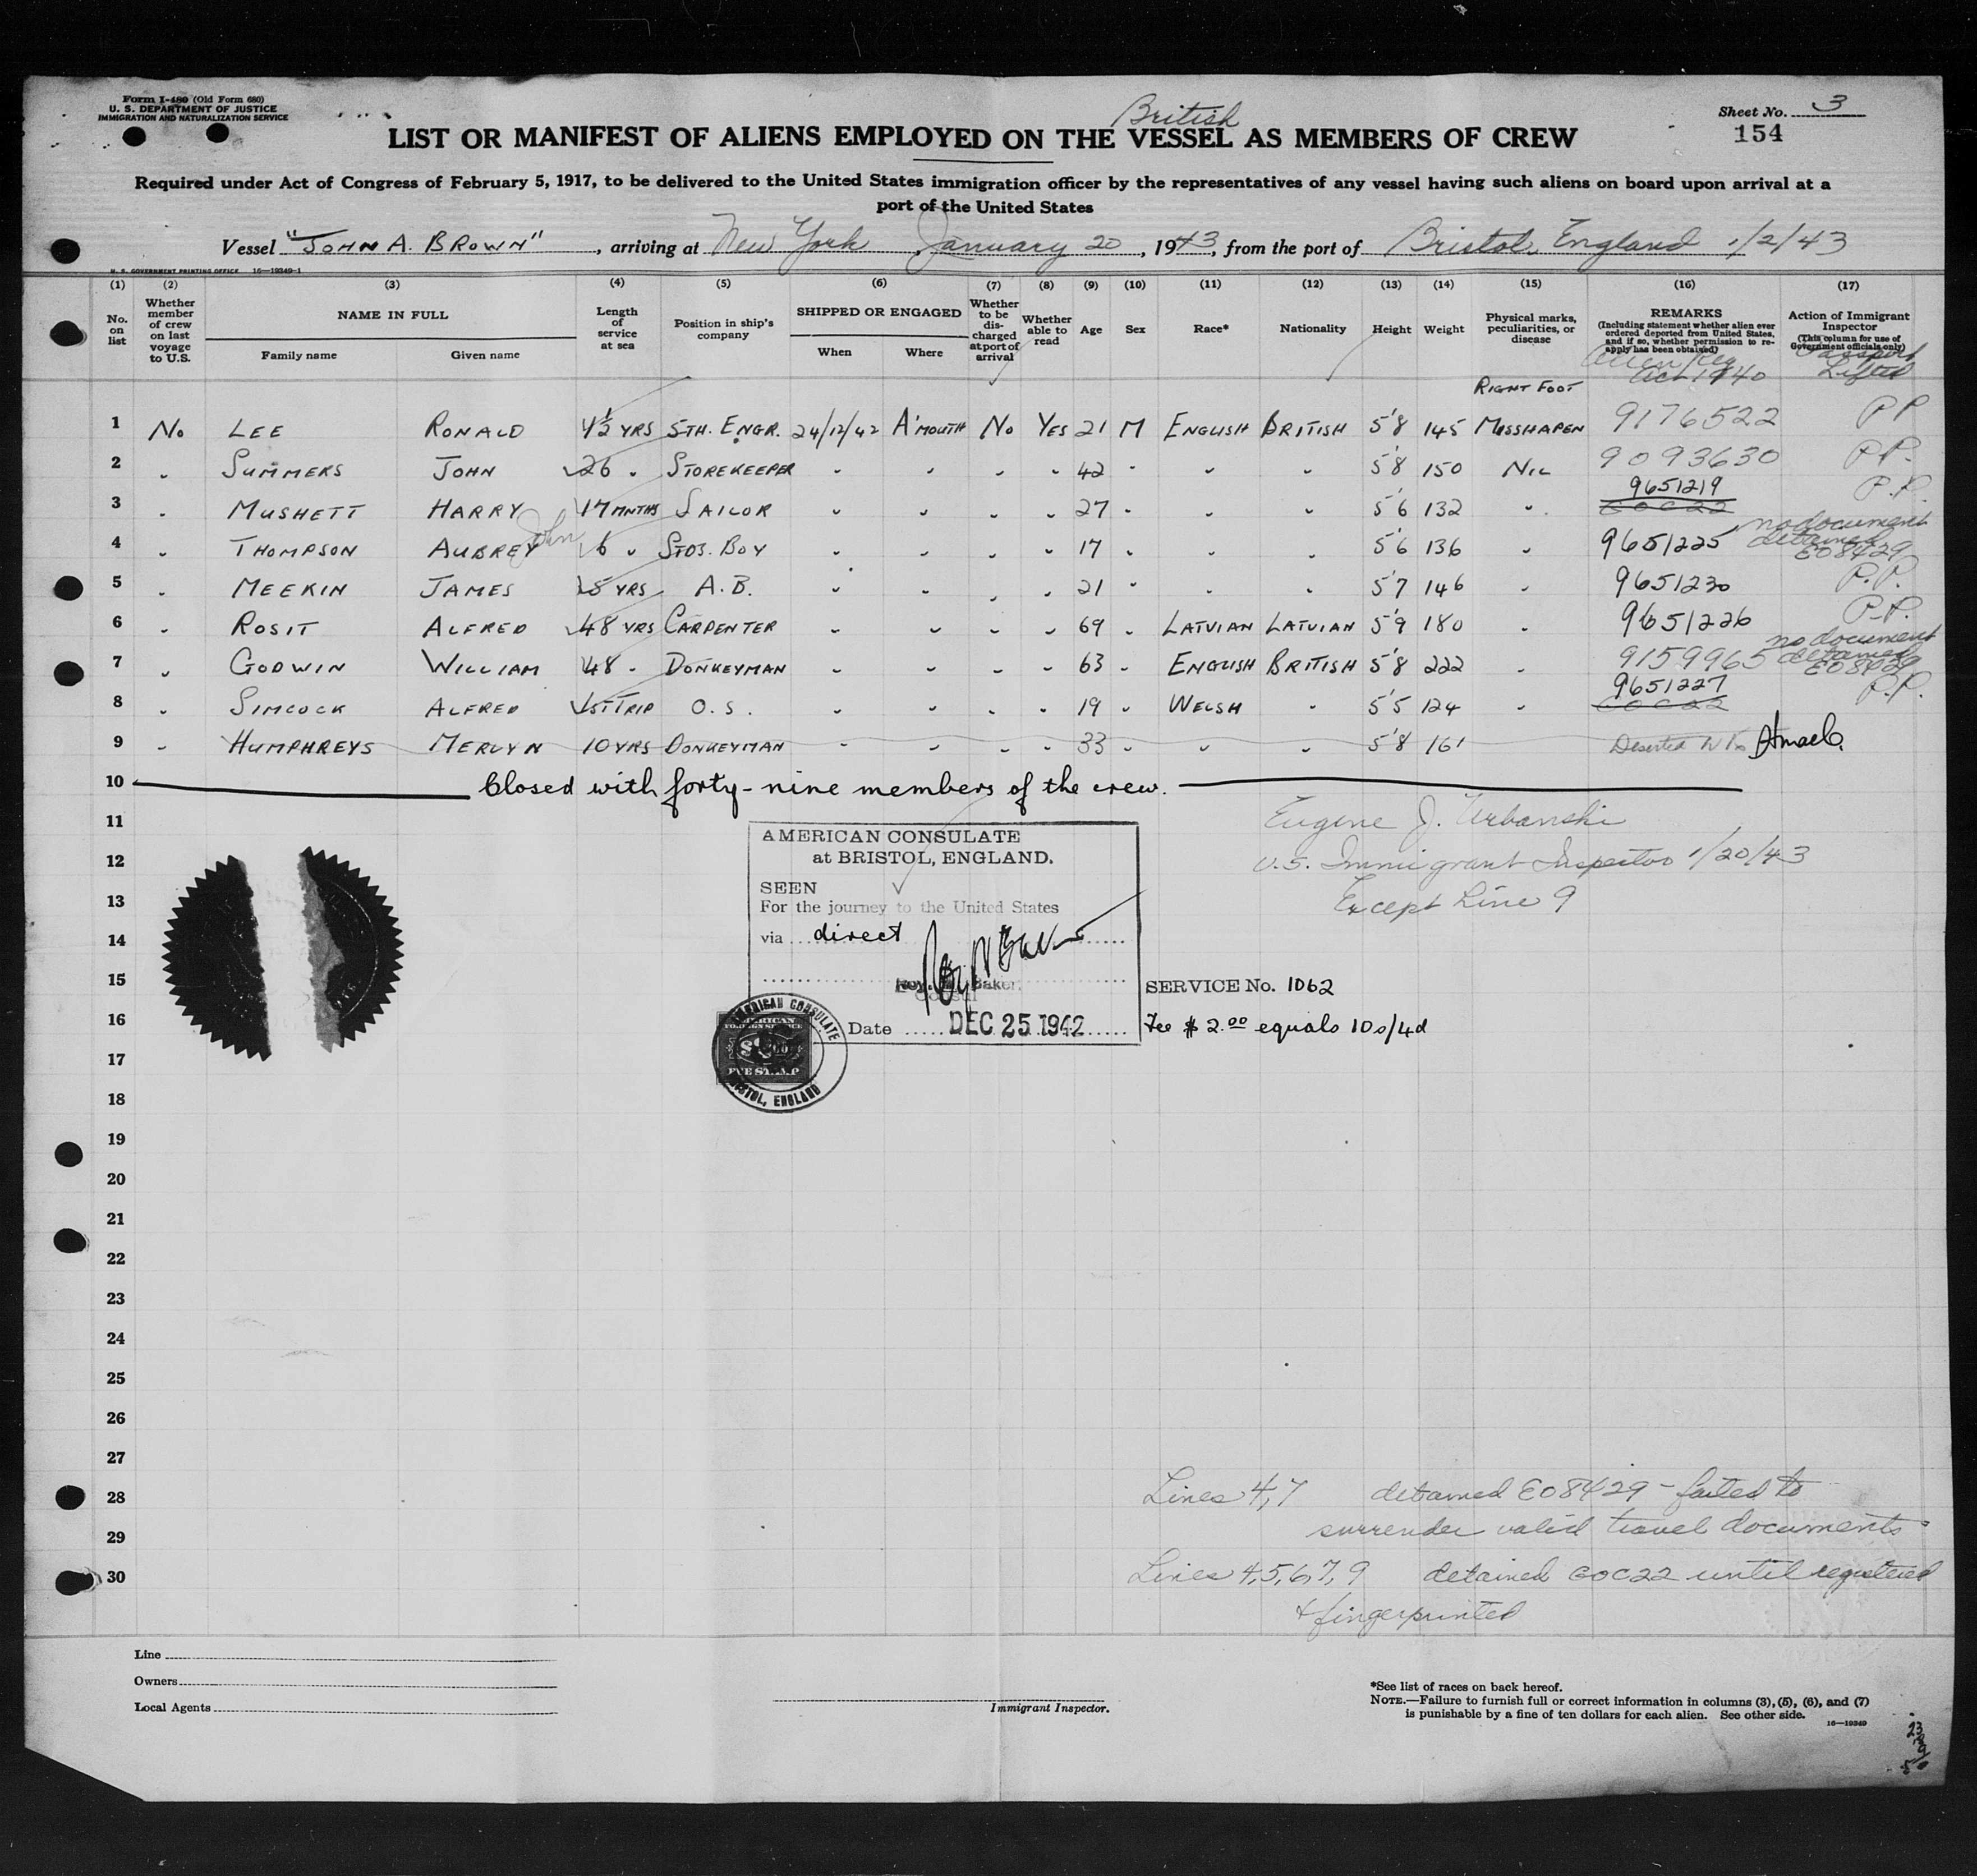 Form I-480 (Old Form 680)
U. S. DEPARTMENT OF JUSTICE
IMMIGRATION AND NATURALIZATION SERVICE
Sheet No. 3
154
British
LIST OR MANIFEST OF ALIENS EMPLOYED ON THE VESSEL AS MEMBERS OF CREW
Required under Act of Congress of February 5, 1917, to be delivered to the United States immigration officer by the representatives of any vessel having such aliens on board upon arrival at a
port of the United States
Vessel "JOHN A. BROWN", arriving at New York January 20, 1943, from the port of Bristol, England 1/2/43
U. S. GOVERNMENT PRINTING OFFICE 16—19349-1
(1) (2) (3) (4) (5) (6) (7) (8) (9) (10) (11) (12) (13) (14) (15) (16) (17)
No. on list
Whether member of crew on last voyage to U.S.
NAME IN FULL
Family name Given name
Length of service at sea
Position in ship's company
SHIPPED OR ENGAGED
When Where
Whether to be discharged at port of arrival
Whether able to read
Age
Sex
Race*
Nationality
Height
Weight
Physical marks, peculiarities, or disease
REMARKS
(Including statement whether alien ever ordered deported from United States, and if so, whether permission to reapply has been obtained)
Action of Immigrant Inspector
(This column for use of Government officials only)
Alien Reg Act 1940
Passport Lifted
RIGHT FOOT
1 No LEE RONALD 4½ YRS 5TH. ENGR. 24/12/42 A'MOUTH No YES 21 M ENGLISH BRITISH 5'8 145 MISSHAPEN 9176522 PP
2 " SUMMERS JOHN 26 " STOREKEEPER " " " " 42 " " " 5'8 150 NIL 9093630 P.P.
9651219
3 " MUSHETT HARRY 17 MNTHS SAILOR " " " " 27 " " " 5'6 132 " EOC22 P.P.
no document
detained
E08429
4 " THOMPSON AUBREY John 6 " STOS. BOY " " " " 17 " " " 5'6 136 " 9651225
5 " MEEKIN JAMES 5 YRS A.B. " " " " 21 " " " 5'7 146 " 9651230 P.P.
6 " ROSIT ALFRED 48 YRS CARPENTER " " " " 69 " LATVIAN LATVIAN 5'9 180 " 9651226 P.P.
no document
detained
E08429
7 " GODWIN WILLIAM 48 " DONKEYMAN " " " " 63 " ENGLISH BRITISH 5'8 222 " 9159965
9651227
8 " SIMCOCK ALFRED 1ST TRIP O.S. " " " " 19 " WELSH " 5'5 124 " EOC22 P.P.
9 " HUMPHREYS MERLYN 10 YRS DONKEYMAN " " " " 33 " " " 5'8 161 Deserted
10 Closed with forty-nine members of the crew.
11 Eugene J. Urbanski
12 U.S. Immigrant Inspector 1/20/43
13 Except Line 9
14
15
16
17
18
19
20
21
22
23
24
25
26
27
28
29
30
AMERICAN CONSULATE
at BRISTOL, ENGLAND.
SEEN
For the journey to the United States
via direct
Baker
Consul
Date DEC 25 1942
SERVICE No. 1062
Fee $ 2.00 equals 10s/4d
AMERICAN CONSULATE
BRISTOL, ENGLAND
AMERICAN
FOREIGN SERVICE
FEE STAMP
Lines 4,7 detained E08429 - failed to
surrender valid travel documents
Lines 4,5,6,7,9 detained EOC22 until registered
& fingerprinted
Line
Owners
Local Agents
Immigrant Inspector.
*See list of races on back hereof.
NOTE.—Failure to furnish full or correct information in columns (3), (5), (6), and (7)
is punishable by a fine of ten dollars for each alien. See other side.
16—19349